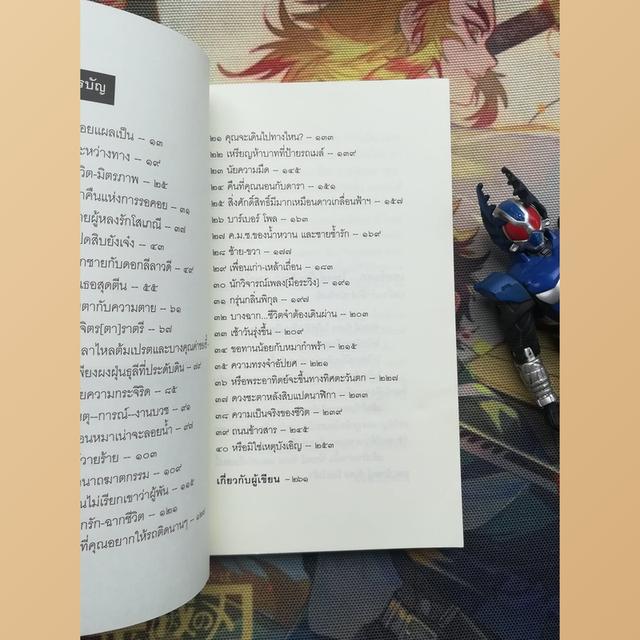 รบัญ
อยแผลเป็น – ๑๓
ะหว่างทาง – ๑๙
วิต-มิตรภาพ – ๒๕
าคืนแห่งการรอคอย – ๓๑
ายผู้หลงรักโสเภณี – ๓๗
ปดสิบยังเจ๋ง – ๔๓
กชายกับดอกลีลาวดี – ๔๙
เธอสุดตีน – ๕๕
ตากับความตาย – ๖๑
จิตร[ตา]ราตรี – ๖๗
ลาไหลต้มเปรตและบางคุณค่าของ
เพียงผงฝุ่นธุลีที่ประดับดิน – ๗๙
ยความกระจิริด – ๘๕
หตุ–การณ์–งานบวช – ๙๑
อนหมาเน่าจะลอยน้ำ – ๙๗
วายร้าย – ๑๐๓
นาถฆาตกรรม – ๑๐๙
นไม่เรียกเขาว่าผู้พัน – ๑๑๕
กรัก-ฉากชีวิต – ๑๒๑
ที่คุณอยากให้รถติดนานๆ –
๒๑ คุณจะเดินไปทางไหน? – ๑๓๓
๒๒ เหรียญห้าบาทที่ป้ายรถเมล์ – ๑๓๙
๒๓ นัยความมืด – ๑๔๕
๒๔ คืนที่คุณนอนกับดารา – ๑๕๑
๒๕ สิ่งศักดิ์สิทธิ์มีมากเหมือนดาวเกลื่อนฟ้าฯ – ๑๕๗
๒๖ บาร์เบอร์ โพล – ๑๖๓
๒๗ ค.ม.ช.ของน้ำหวาน และชายช้ำรัก – ๑๖๙
๒๘ ซ้าย-ขวา – ๑๗๗
๒๙ เพื่อนเก่า-เหล้าเถื่อน – ๑๘๓
๓๐ นักวิจารณ์เพลง[มือระวิง] – ๑๙๑
๓๑ กรุ่นกลิ่นพิกุล – ๑๙๗
๓๒ บางฉาก...ชีวิตจำต้องเดินผ่าน – ๒๐๓
๓๓ เช้าวันรุ่งขึ้น – ๒๐๙
๓๔ ขอทานน้อยกับหมากำพร้า – ๒๑๕
๓๕ ความทรงจำอัปยศ – ๒๒๑
๓๖ หรือพระอาทิตย์จะขึ้นทางทิศตะวันตก – ๒๒๗
๓๗ ดวงชะตาหลังสิบแปดนาฬิกา – ๒๓๓
๓๘ ความเป็นจริงของชีวิต – ๒๓๙
๓๙ ถนนข้าวสาร – ๒๔๕
๔๐ หรือมิใช่เหตุบังเอิญ – ๒๕๓
เกี่ยวกับผู้เขียน –๒๖๑